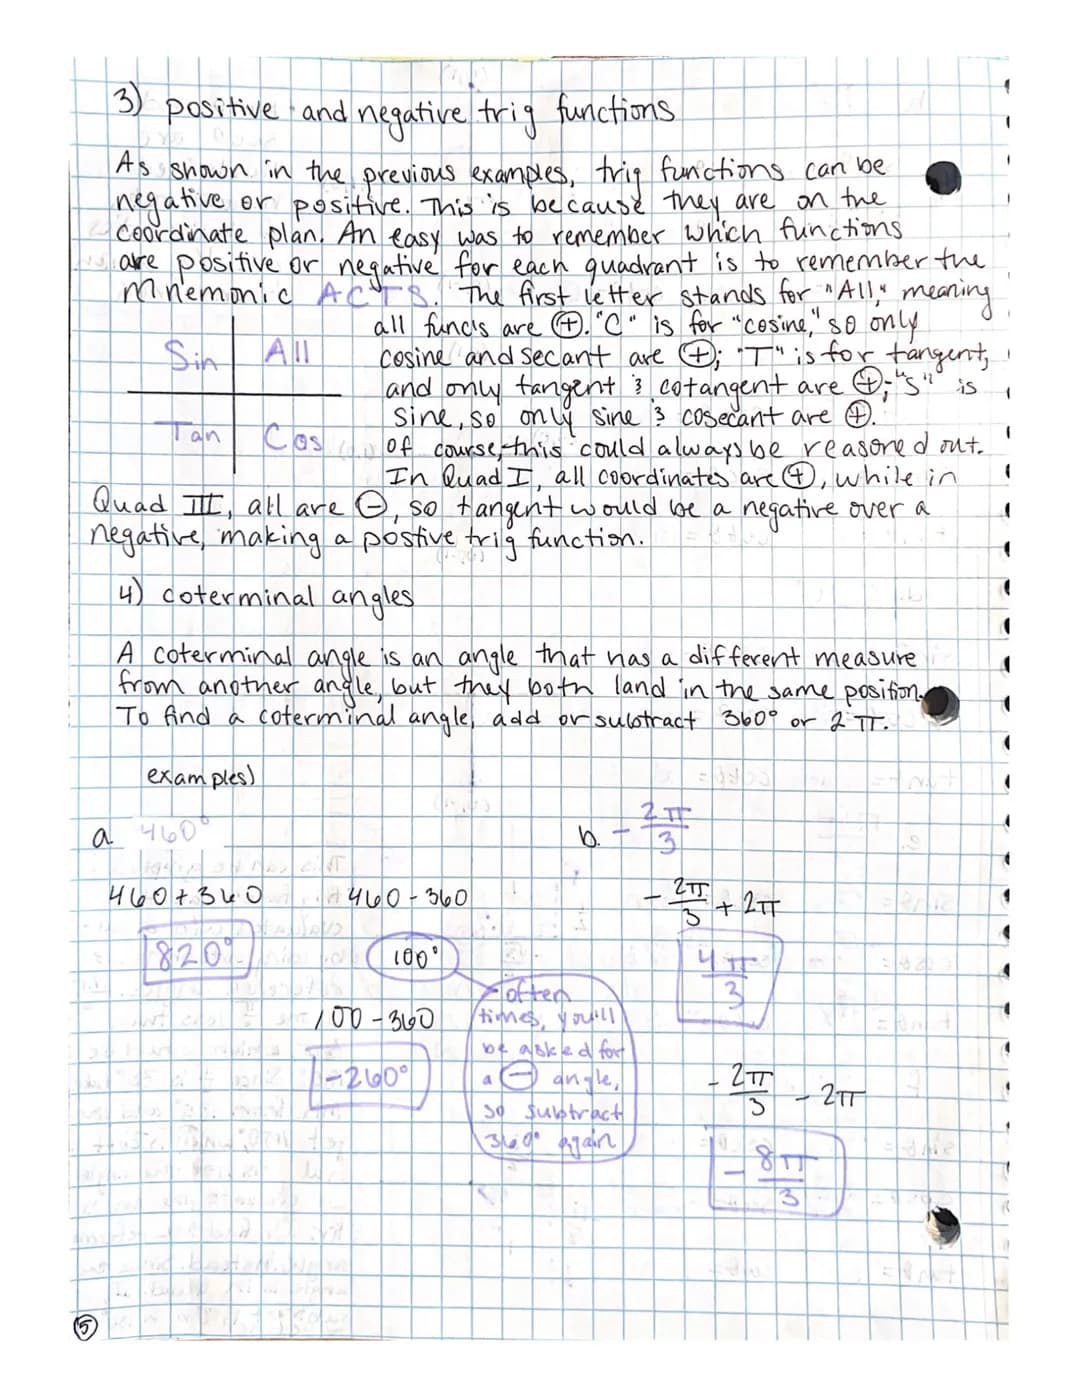 3) positive and negative trig functions
As shown in the previous examples, trig functions can be
negative or positive. This is because they are on the
coordinate plan. An easy was to remember which functions
are positive or negative for each quadrant is to remember the
mnemonic ACTS. The first letter stands for "All," meaning
all func's are ⊕. "C" is for "cosine," so only
cosine and secant are ⊕; "T" is for tangent,
and only tangent & cotangent are ⊕; "S" is
sine, so only sine & cosecant are ⊕.
Of course, this could always be reasoned out.
In Quad I, all coordinates are ⊕, while in
Quad III, all are ⊖, so tangent would be a negative over a
negative, making a postive trig function.
Sin All
Tan Cos
4) coterminal angles
A coterminal angle is an angle that has a different measure
from another angle, but they both land in the same position.
To find a coterminal angle, add or subtract 360° or 2π.
examples)
a. 460°
460 + 360
820°
460 - 360
100°
100 - 360
-260°
often
times, you'll
be asked for
a ⊖ angle,
so subtract
360° again
b. -2π/3
-2π/3 + 2π
4π/3
-2π/3 - 2π
-8π/3
5